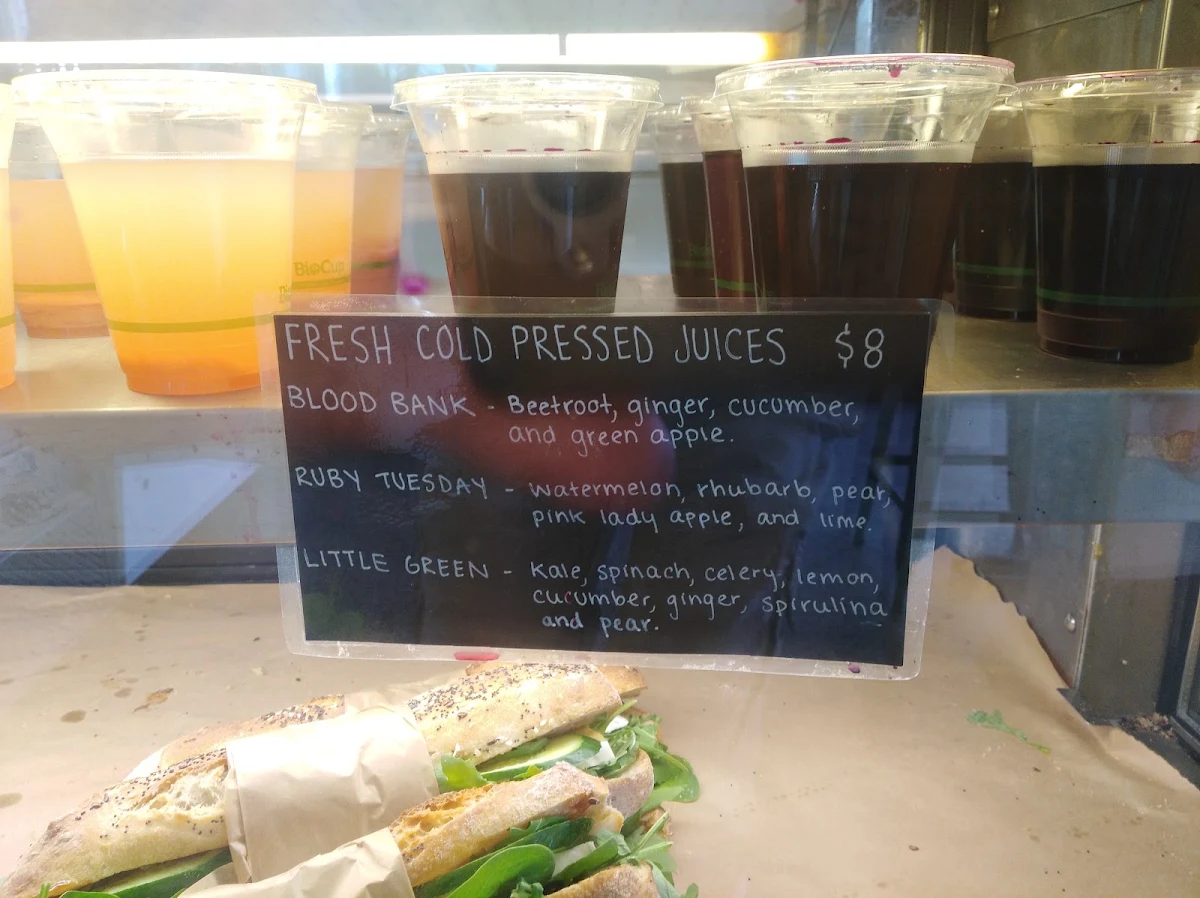 BioCup
FRESH COLD PRESSED JUICES $8
BLOOD BANK - Beetroot, ginger, cucumber,
and green apple.
RUBY TUESDAY - watermelon, rhubarb, pear,
pink lady apple, and lime.
LITTLE GREEN - Kale, spinach, celery, lemon,
cucumber, ginger, spirulina
and pear.